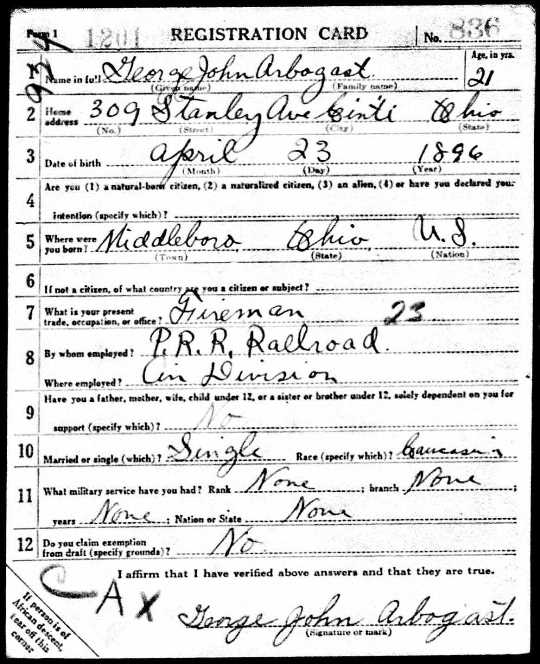 Form 1 1201 REGISTRATION CARD No. 836
924
1 Name in full George John Arbogast Age, in yrs. 21
(Given name) (Family name)
2 Home address 309 Stanley Ave Cinti Ohio
(No.) (Street) (City) (State)
3 Date of birth April 23 1896
(Month) (Day) (Year)
4 Are you (1) a natural-born citizen, (2) a naturalized citizen, (3) an alien, (4) or have you declared your
intention (specify which)?
5 Where were you born? Middleboro Ohio U.S.
(Town) (State) (Nation)
6 If not a citizen, of what country are you a citizen or subject?
7 What is your present trade, occupation, or office? Fireman 23
8 By whom employed? P.R.R. Railroad.
Where employed? Cin Division
9 Have you a father, mother, wife, child under 12, or a sister or brother under 12, solely dependent on you for
support (specify which)? No
10 Married or single (which)? Single Race (specify which)? Caucasian
11 What military service have you had? Rank None ; branch None ;
years None ; Nation or State None
12 Do you claim exemption from draft (specify grounds)? No
I affirm that I have verified above answers and that they are true.
A x
George John Arbogast.
(Signature or mark)
If person is of
African descent,
tear off this
corner.